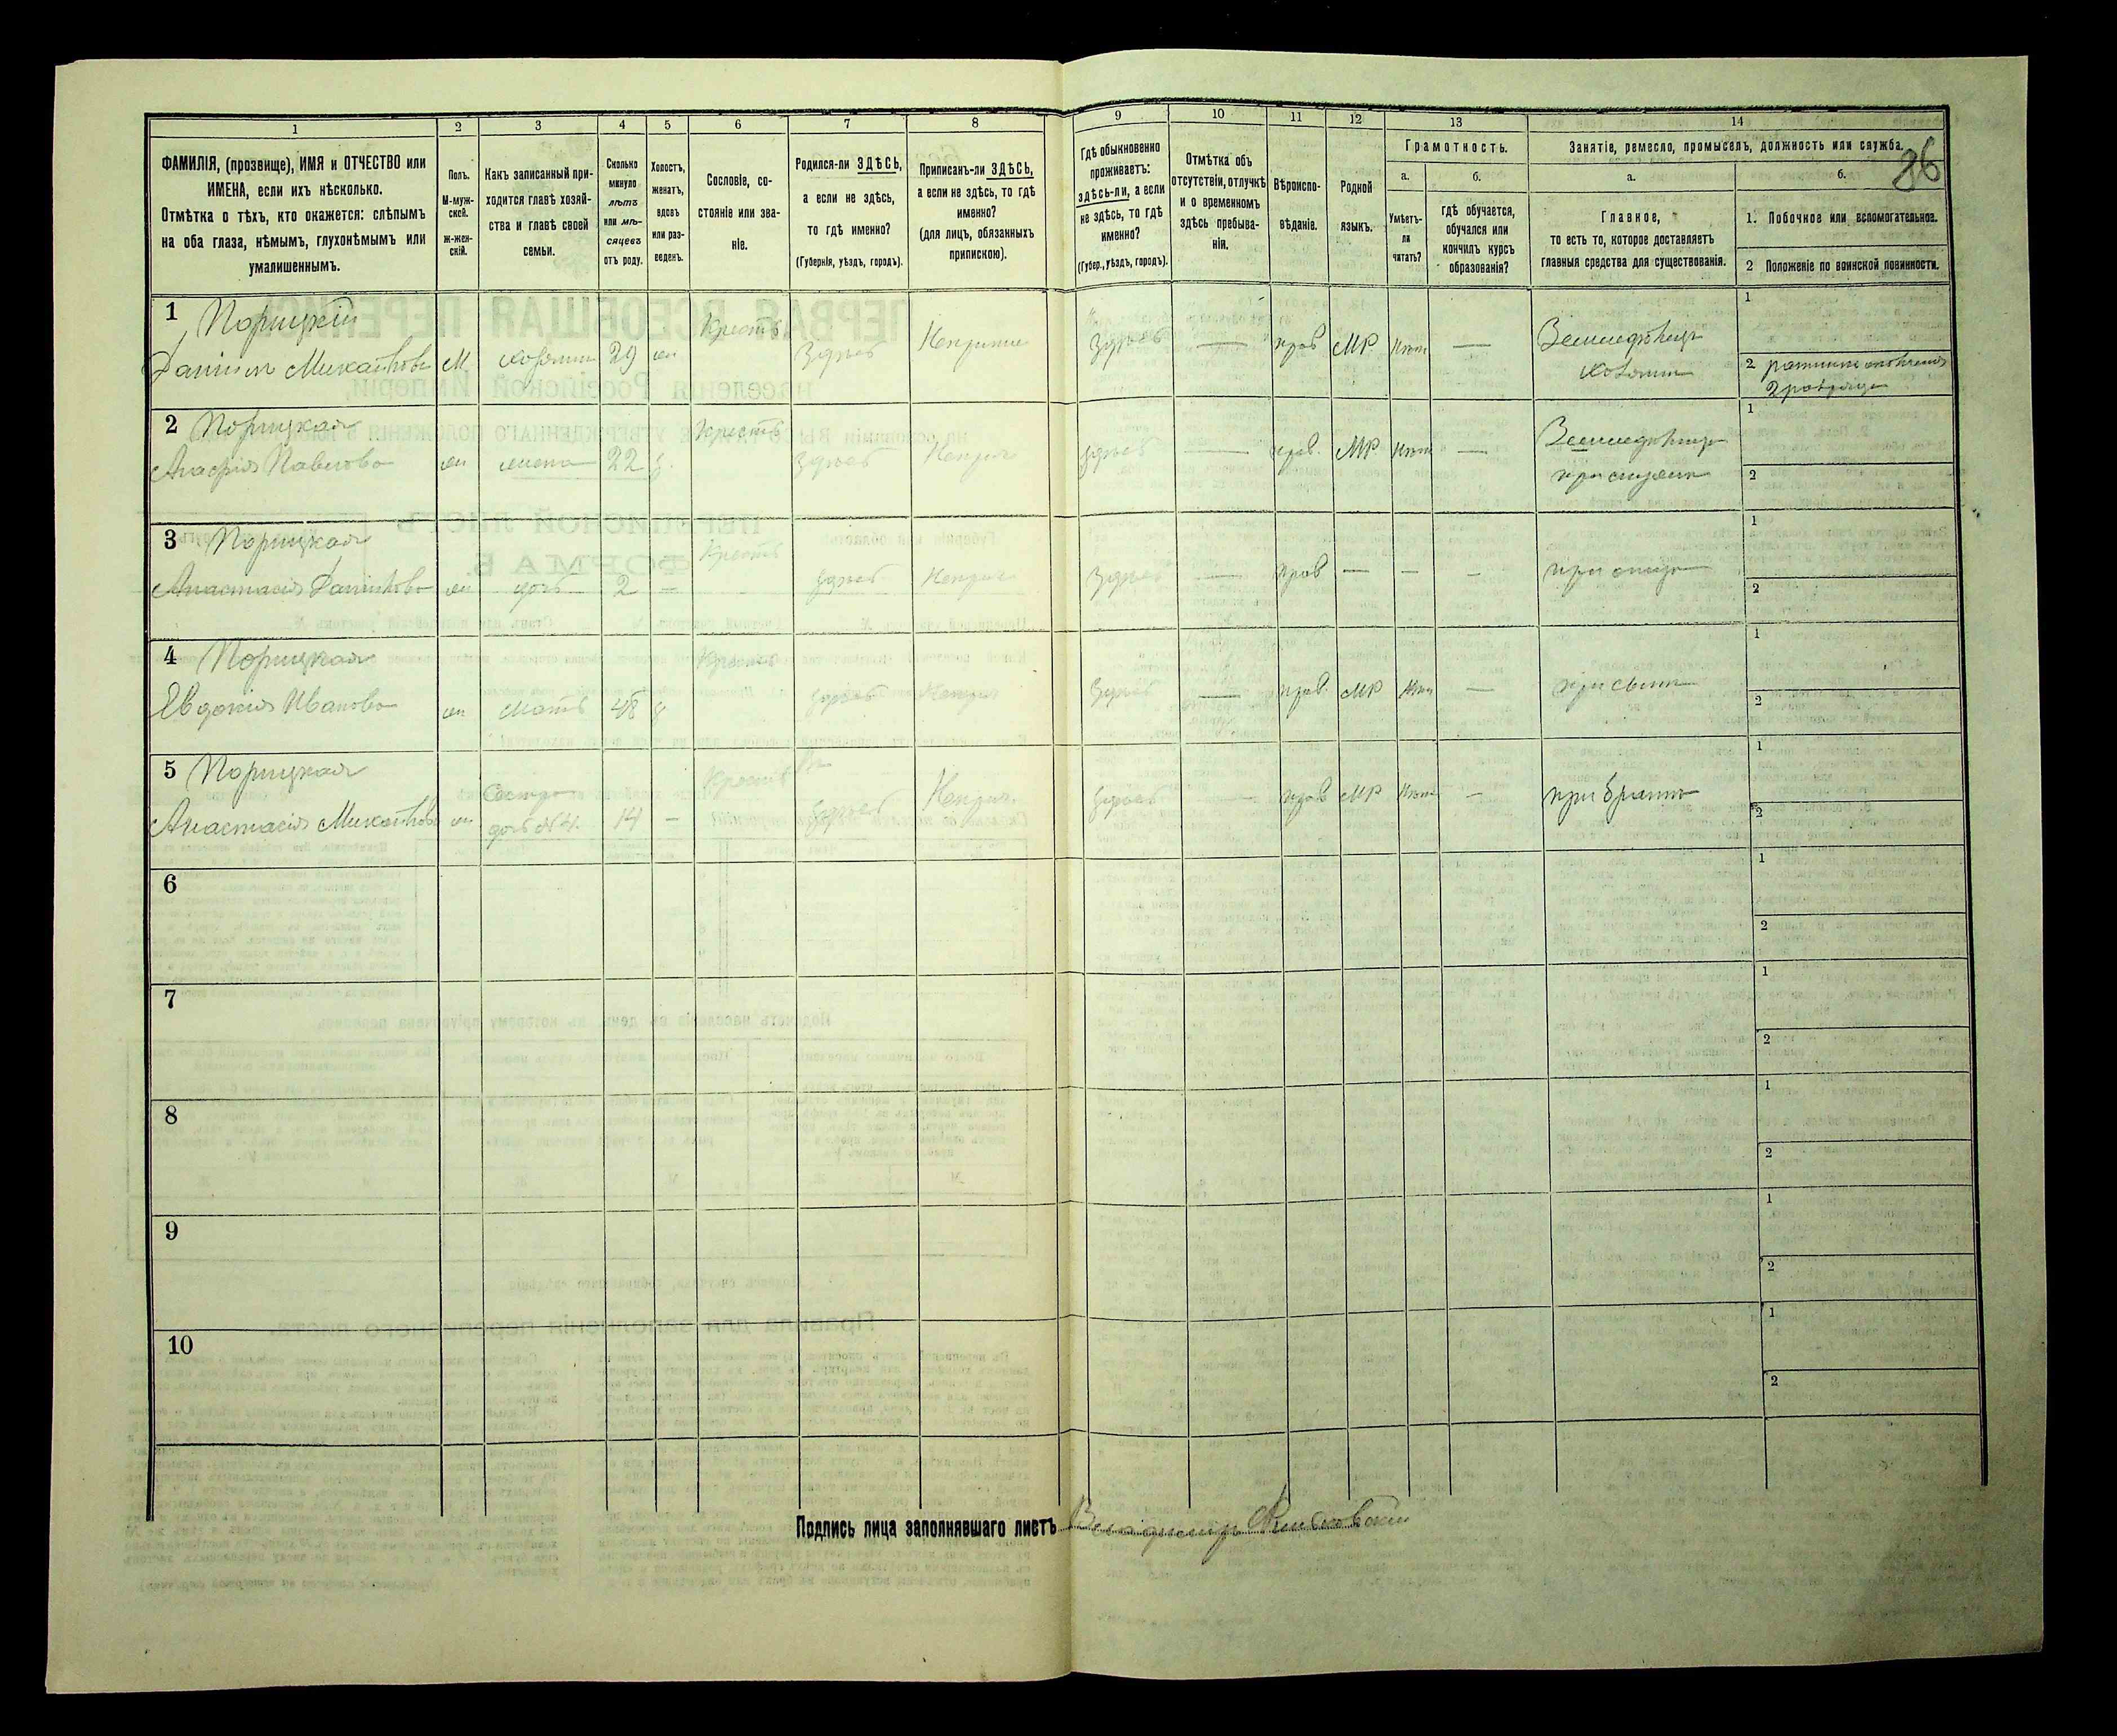 86
1 2 3 4 5 6 7 8 9 10 11 12 13 14
ФАМИЛІЯ, (прозвище), ИМЯ и ОТЧЕСТВО или
ИМЕНА, если ихъ нѣсколько.
Отмѣтка о тѣхъ, кто окажется: слѣпымъ
на оба глаза, нѣмымъ, глухонѣмымъ или
умалишеннымъ.
Полъ.
М-муж-
ской.
Ж-жен-
скій.
Какъ записанный при-
ходится главѣ хозяй-
ства и главѣ своей
семьи.
Сколько
минуло
лѣтъ
или мѣ-
сяцевъ
отъ роду.
Холостъ,
женатъ,
вдовъ
или раз-
веденъ.
Сословіе, со-
стояніе или зва-
ніе.
Родился-ли ЗДѢСЬ,
а если не здѣсь,
то гдѣ именно?
(Губернія, уѣздъ, городъ).
Приписанъ-ли ЗДѢСЬ,
а если не здѣсь, то гдѣ
именно?
(для лицъ, обязанныхъ
припискою).
Гдѣ обыкновенно
проживаетъ:
здѣсь-ли, а если
не здѣсь, то гдѣ
именно?
(Губер., уѣздъ, городъ).
Отмѣтка объ
отсутствіи, отлучкѣ
и о временномъ
здѣсь пребыва-
ніи.
Вѣроиспо-
вѣданіе.
Родной
языкъ.
Грамотность.
а.
Умѣетъ-
ли
читать?
б.
гдѣ обучается,
обучался или
кончилъ курсъ
образованія?
Занятіе, ремесло, промыселъ, должность или служба.
а.
Главное,
то есть то, которое доставляетъ
главныя средства для существованія.
б.
1. Побочное или вспомогательное.
2 Положеніе по воинской повинности.
1 Порицкій
Даніилъ Михайловъ М. хозяинъ 29 жн Крестъ Здѣсь здѣсь — прав МР. Нѣтъ — Земледѣлецъ
хозяинъ
1
2
2 Порицкая
Павлова жн жена 22 з. Крестъ Здѣсь здѣсь — прав. МР Нѣтъ —
при мужѣ
1
2
3 Порицкая
Анастасія Данилова жн дочь 2 — Крестъ здѣсь Здѣсь — прав — — — при отцѣ
1
2
4 Порицкая
Евдокія Иванова жн мать 48 Крестъ здѣсь Здѣсь — прав. МР Нѣтъ — при сынѣ
1
2
5 Порицкая
Анастасія Михайлова жн Сестра
дочь №4. 14 — Крестъ здѣсь здѣсь — прав МР Нѣтъ — при братѣ
1
2
6
1
2
7
1
2
8
1
2
9
1
2
10
1
2
Подпись лица заполнявшаго листъ Владимиръ